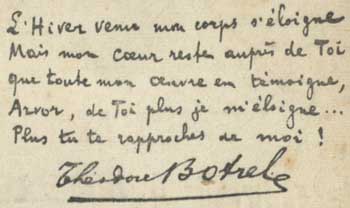 L'Hiver venu mon corps s'éloigne
Mais mon cœur reste auprès de Toi
que toute mon œuvre en témoigne,
Arvor, de Toi plus je m'éloigne...
Plus tu te rapproches de moi !
Théodore Botrel